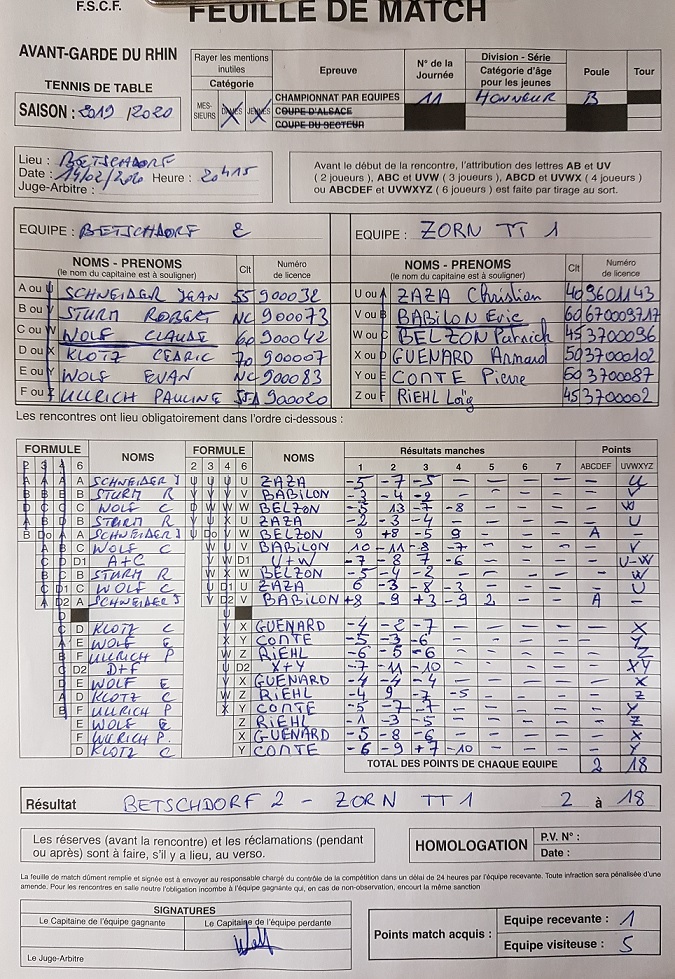 F.S.C.F.
FEUILLE DE MATCH
AVANT-GARDE DU RHIN
TENNIS DE TABLE
SAISON : 2019 /2020
Rayer les mentions inutiles
Catégorie
MES-SIEURS DAMES JEUNES
Epreuve
CHAMPIONNAT PAR EQUIPES
COUPE D'ALSACE
COUPE DU SECTEUR
N° de la Journée
11
Division - Série
Catégorie d'âge pour les jeunes
HONNEUR
Poule
B
Tour
Lieu : BETSCHDORF
Date : 14/02/2020 Heure : 20H15
Juge-Arbitre :
Avant le début de la rencontre, l'attribution des lettres AB et UV
( 2 joueurs ), ABC et UVW ( 3 joueurs ), ABCD et UVWX ( 4 joueurs )
ou ABCDEF et UVWXYZ ( 6 joueurs ) est faite par tirage au sort.
EQUIPE : BETSCHDORF 2
EQUIPE : ZORN TT 1
NOMS - PRENOMS (le nom du capitaine est à souligner) Clt Numéro de licence
NOMS - PRENOMS (le nom du capitaine est à souligner) Clt Numéro de licence
A ou U SCHNEIDER JEAN 55 900032
U ou A ZAZA Christian 40 3601143
B ou V STURM ROBERT NC 900073
V ou B BABILON Eric 60 670003717
C ou W WOLF CLAUDE 60 900042
W ou C BELZON Patrick 45 3700096
D ou X KLOTZ CEDRIC 70 900007
X ou D GUENARD Armand 50 3700102
E ou Y WOLF EVAN NC 900083
Y ou E CONTE Pierre 60 3700087
F ou Z ULLRICH PAULINE 55A 900020
Z ou F RIEHL Loïg 45 3700002
Les rencontres ont lieu obligatoirement dans l'ordre ci-dessous :
FORMULE NOMS FORMULE NOMS Résultats manches Points
2 3 4 6 2 3 4 6 1 2 3 4 5 6 7 ABCDEF UVWXYZ
A A A A SCHNEIDER J U U U U ZAZA -5 -7 -5 – – – – – U
B B B B STURM R V V V V BABILON -3 -4 -2 – – – – – V
C C C WOLF C W W W BELZON -5 13 -7 -8 – – – – W
A B D B STURM R U V X U ZAZA -2 -3 -4 – – – – – U
B Do A A SCHNEIDER J U Do V W BELZON 9 +8 -5 9 – – – A –
A B C WOLF C V U V BABILON 10 -11 -8 -7 – – – – V
C D D1 A+C W W D1 U+W -7 -8 7 -6 – – – – U-W
C B B STURM R W X W BELZON -5 -4 -2 – – – – – W
C D1 C WOLF C U D1 U ZAZA 6 -3 -8 -3 – – – – U
A D2 A SCHNEIDER J V D2 V BABILON +8 -9 +3 -9 2 – – A –
C U
C D KLOTZ C V X GUENARD -4 -2 -7 – – – – – X
A E WOLF E X Y CONTE -5 -3 -6 – – – – – Y
B F ULLRICH P W Z RIEHL -6 -5 -6 – – – – – Z
C D2 D+F U D2 X+Y -7 -11 -10 – – – – – XY
D E WOLF E V X GUENARD -4 -4 -4 – – – – – X
A D KLOTZ C W Z RIEHL -4 9 -7 -5 – – – – Z
B F ULLRICH P X Y CONTE -5 -7 -7 – – – – – Y
E WOLF E Z RIEHL -1 -3 -5 – – – – – Z
F ULLRICH P. X GUENARD -5 -8 -6 – – – – – X
D KLOTZ C Y CONTE -6 -9 +7 -10 – – – – Y
TOTAL DES POINTS DE CHAQUE EQUIPE 2 18
Résultat BETSCHDORF 2 - ZORN TT 1 2 à 18
Les réserves (avant la rencontre) et les réclamations (pendant
ou après) sont à faire, s'il y a lieu, au verso.
HOMOLOGATION
P.V. N° :
Date :
La feuille de match dûment remplie et signée est à envoyer au responsable chargé du contrôle de la compétition dans un délai de 24 heures par l'équipe recevante. Toute infraction sera pénalisée d'une
amende. Pour les rencontres en salle neutre l'obligation incombe à l'équipe gagnante qui, en cas de non-observation, encourt la même sanction
SIGNATURES
Le Capitaine de l'équipe gagnante
Le Capitaine de l'équipe perdante
Wolf
Le Juge-Arbitre
Points match acquis :
Equipe recevante : 1
Equipe visiteuse : 5